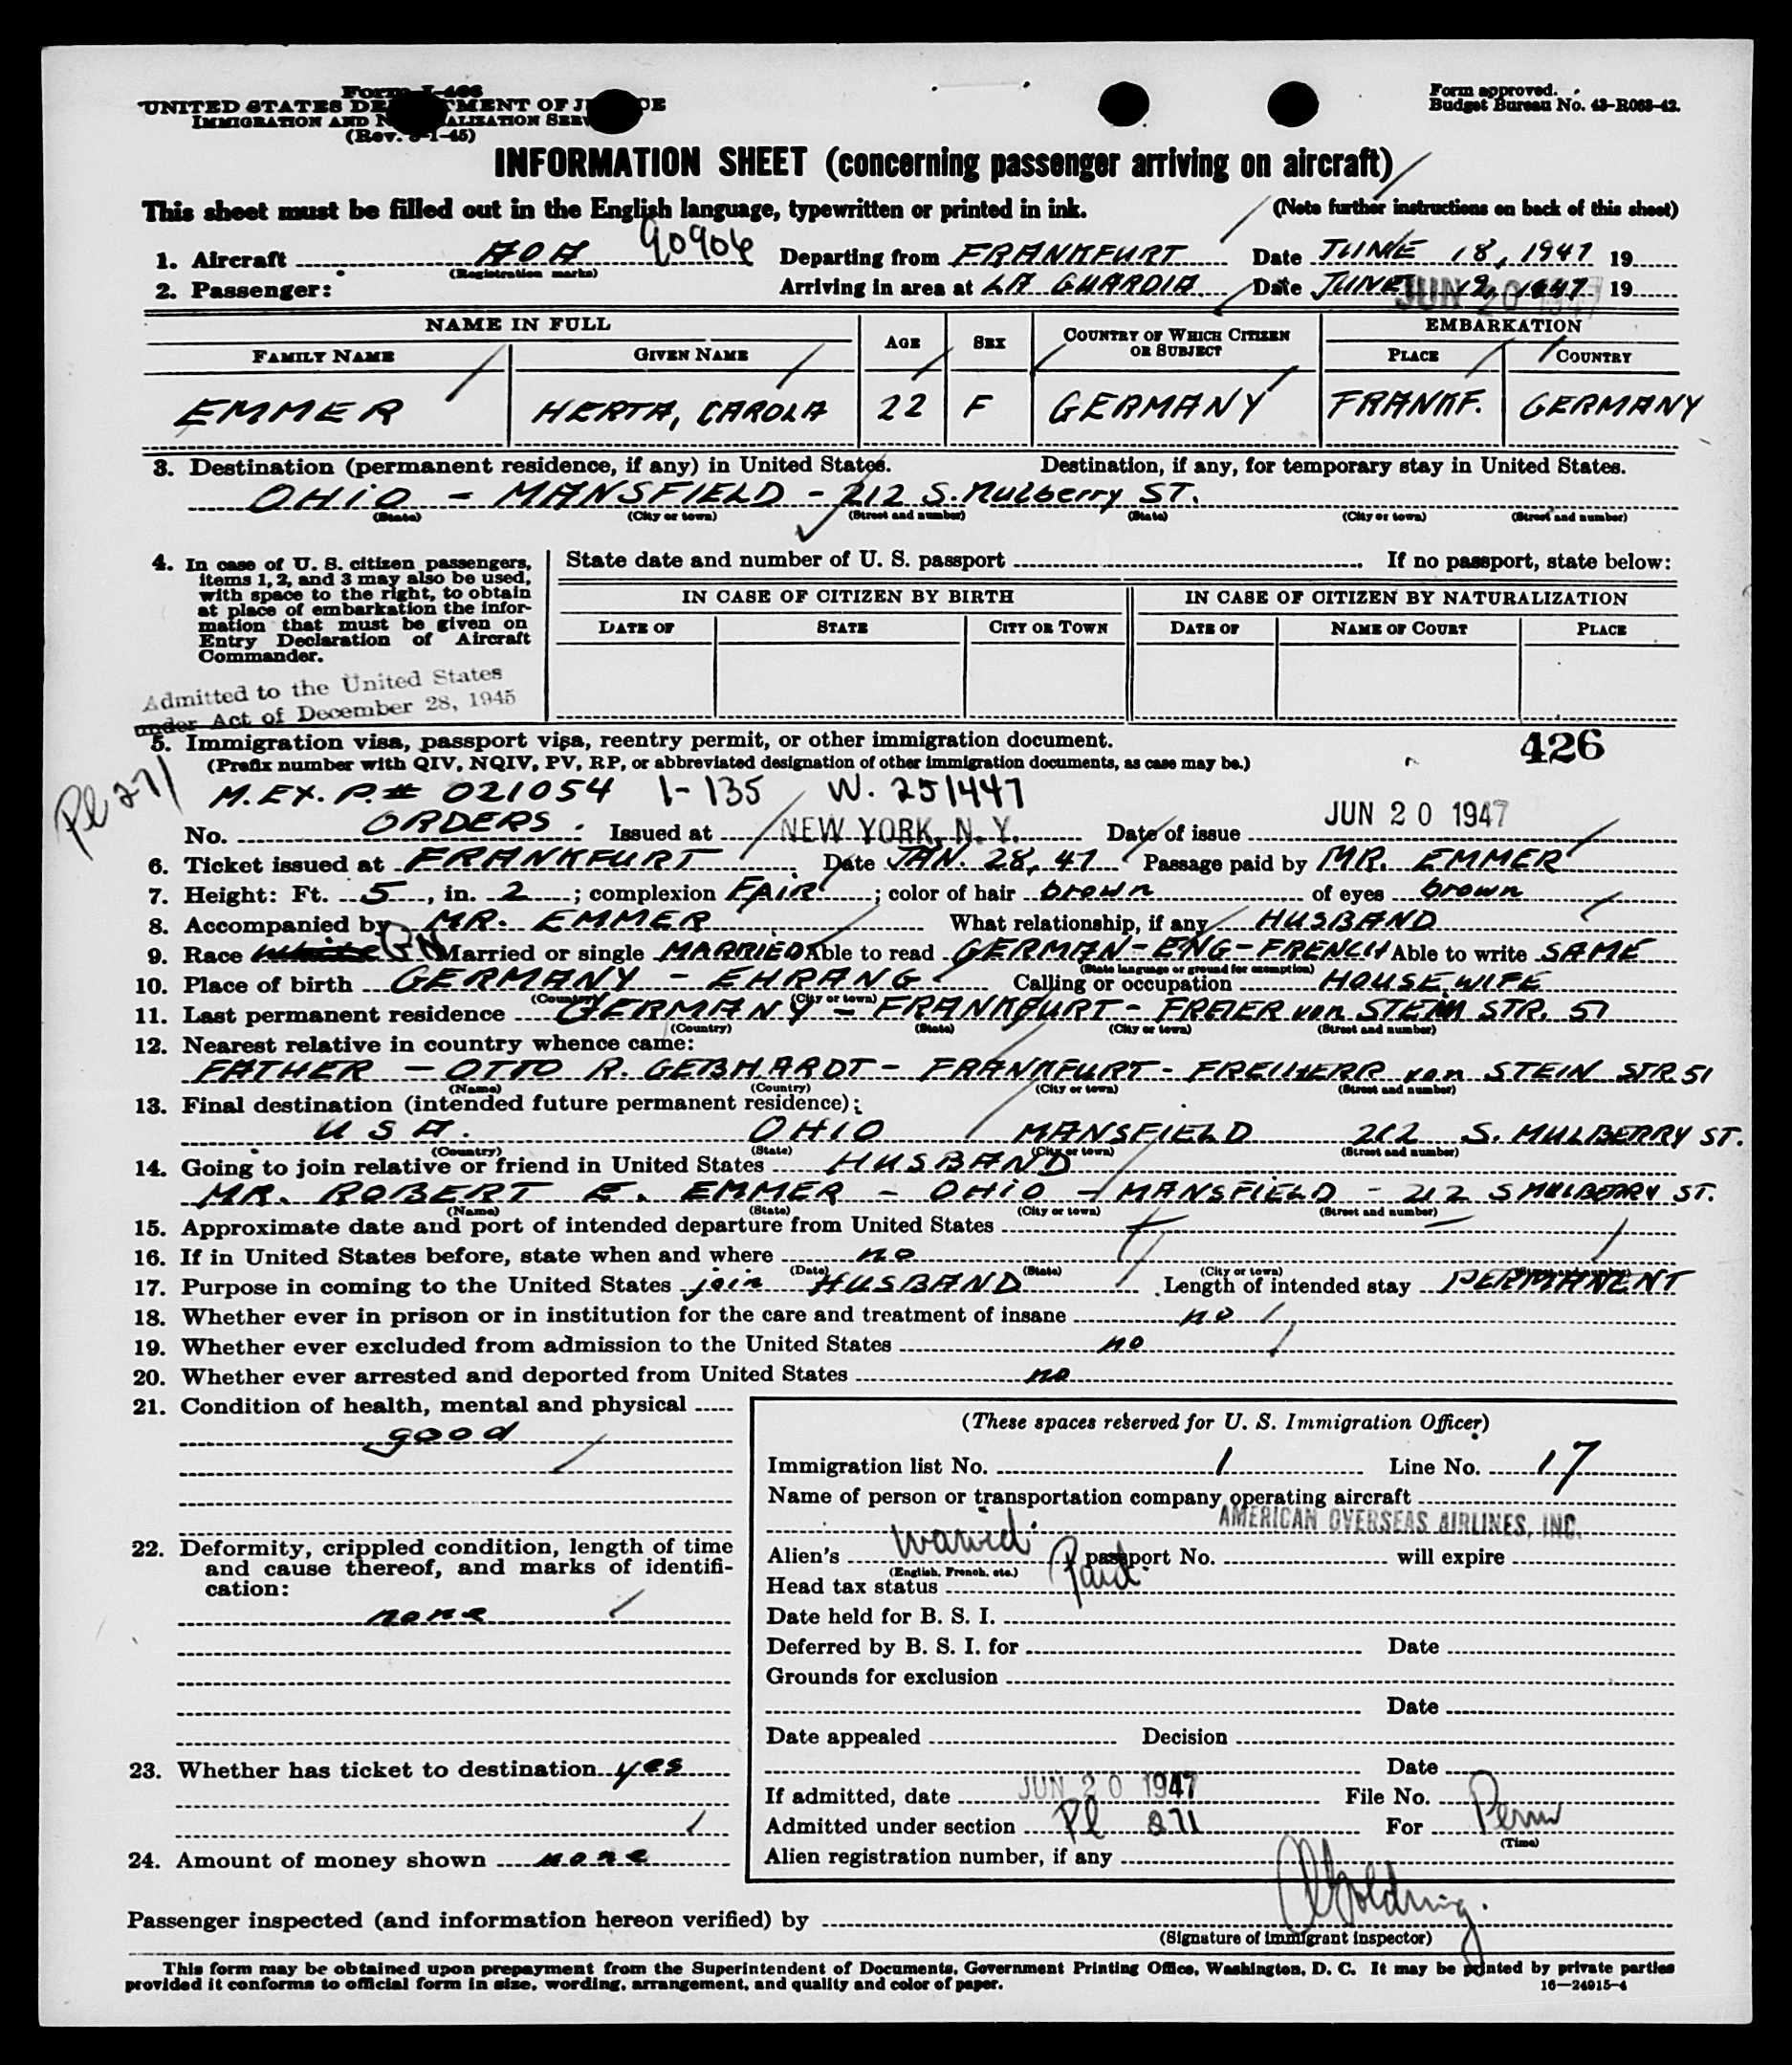 Form I-466
UNITED STATES DEPARTMENT OF JUSTICE
IMMIGRATION AND NATURALIZATION SERVICE
(Rev. -1-45)
Form approved.
Budget Bureau No. 43-R063-42.
INFORMATION SHEET (concerning passenger arriving on aircraft)
This sheet must be filled out in the English language, typewritten or printed in ink. (Note further instructions on back of this sheet)
1. Aircraft AOA 90906 Departing from FRANKFURT Date JUNE 18, 1947 19
(Registration marks)
2. Passenger: Arriving in area at LA GUARDIA Date JUNE 19, 1947 19
JUN 20 1947
NAME IN FULL AGE SEX COUNTRY OF WHICH CITIZEN OR SUBJECT EMBARKATION
FAMILY NAME GIVEN NAME PLACE COUNTRY
EMMER HERTA, CAROLA 22 F GERMANY FRANKF. GERMANY
3. Destination (permanent residence, if any) in United States. Destination, if any, for temporary stay in United States.
OHIO - MANSFIELD - 212 S. Mulberry ST.
(State) (City or town) (Street and number) (State) (City or town) (Street and number)
4. In case of U. S. citizen passengers, items 1, 2, and 3 may also be used, with space to the right, to obtain at place of embarkation the information that must be given on Entry Declaration of Aircraft Commander.
State date and number of U. S. passport If no passport, state below:
IN CASE OF CITIZEN BY BIRTH IN CASE OF CITIZEN BY NATURALIZATION
DATE OF STATE CITY OR TOWN DATE OF NAME OF COURT PLACE
Admitted to the United States
under Act of December 28, 1945
5. Immigration visa, passport visa, reentry permit, or other immigration document. 426
(Prefix number with QIV, NQIV, PV, RP, or abbreviated designation of other immigration documents, as case may be.)
Pl 271
M. EX. P. # 021054 1-135 W. 251447
No. ORDERS. Issued at NEW YORK, N. Y. Date of issue JUN 20 1947
6. Ticket issued at FRANKFURT Date JAN. 28, 47 Passage paid by MR. EMMER
7. Height: Ft. 5, in. 2; complexion FAIR; color of hair brown of eyes brown
8. Accompanied by MR. EMMER What relationship, if any HUSBAND
9. Race white GN Married or single MARRIED Able to read GERMAN - ENG - FRENCH Able to write SAME
(State language or ground for exemption)
10. Place of birth GERMANY - EHRANG Calling or occupation HOUSEWIFE
(Country) (City or town)
11. Last permanent residence GERMANY - FRANKFURT - FREIER von STEIN STR. 51
(Country) (State) (City or town) (Street and number)
12. Nearest relative in country whence came:
FATHER - OTTO R. GEBHARDT - FRANKFURT - FREIHERR von STEIN STR 51
(Name) (Country) (City or town) (Street and number)
13. Final destination (intended future permanent residence):
USA. OHIO MANSFIELD 212 S. MULBERRY ST.
(Country) (State) (City or town) (Street and number)
14. Going to join relative or friend in United States HUSBAND
MR. ROBERT E. EMMER - OHIO - MANSFIELD - 212 S MULBERRY ST.
(Name) (State) (City or town) (Street and number)
15. Approximate date and port of intended departure from United States
16. If in United States before, state when and where no
(Date) (State) (City or town) (Street and number)
17. Purpose in coming to the United States join HUSBAND Length of intended stay PERMANENT
18. Whether ever in prison or in institution for the care and treatment of insane no
19. Whether ever excluded from admission to the United States no
20. Whether ever arrested and deported from United States no
21. Condition of health, mental and physical
good
22. Deformity, crippled condition, length of time and cause thereof, and marks of identification:
none
23. Whether has ticket to destination yes
24. Amount of money shown none
(These spaces reserved for U. S. Immigration Officer)
Immigration list No. 1 Line No. 17
Name of person or transportation company operating aircraft
AMERICAN OVERSEAS AIRLINES, INC.
Alien's waived passport No. will expire
(English, French, etc.)
Head tax status Paid
Date held for B. S. I.
Deferred by B. S. I. for Date
Grounds for exclusion
Date
Date appealed Decision
Date
If admitted, date JUN 20 1947 File No.
Admitted under section Pl 271 For Perm
(Time)
Alien registration number, if any
Passenger inspected (and information hereon verified) by
(Signature of immigrant inspector)
This form may be obtained upon prepayment from the Superintendent of Documents, Government Printing Office, Washington, D. C. It may be printed by private parties
provided it conforms to official form in size, wording, arrangement, and quality and color of paper. 16—24915-4